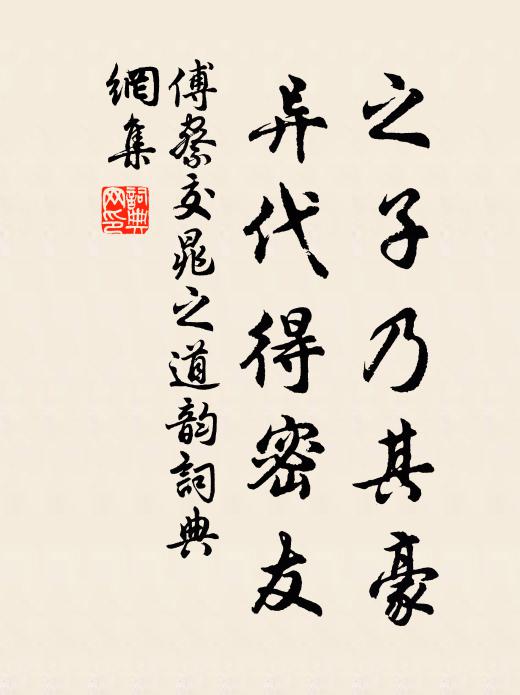 之子乃其豪
异代得密友
傅察交晁之道韵詞典
網集
詞典網印